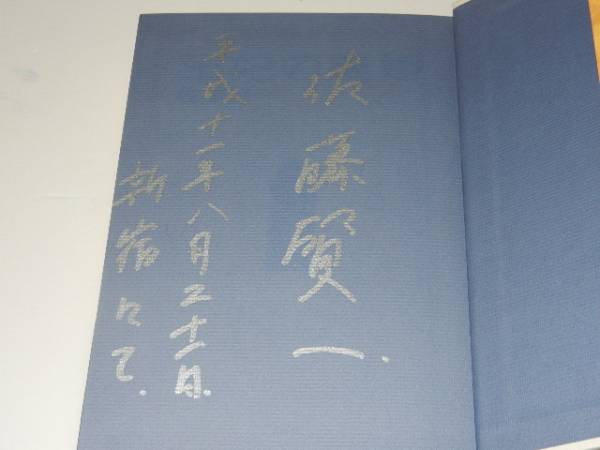 佐藤賢一.
平成十一年八月二十一日.
新宿にて.